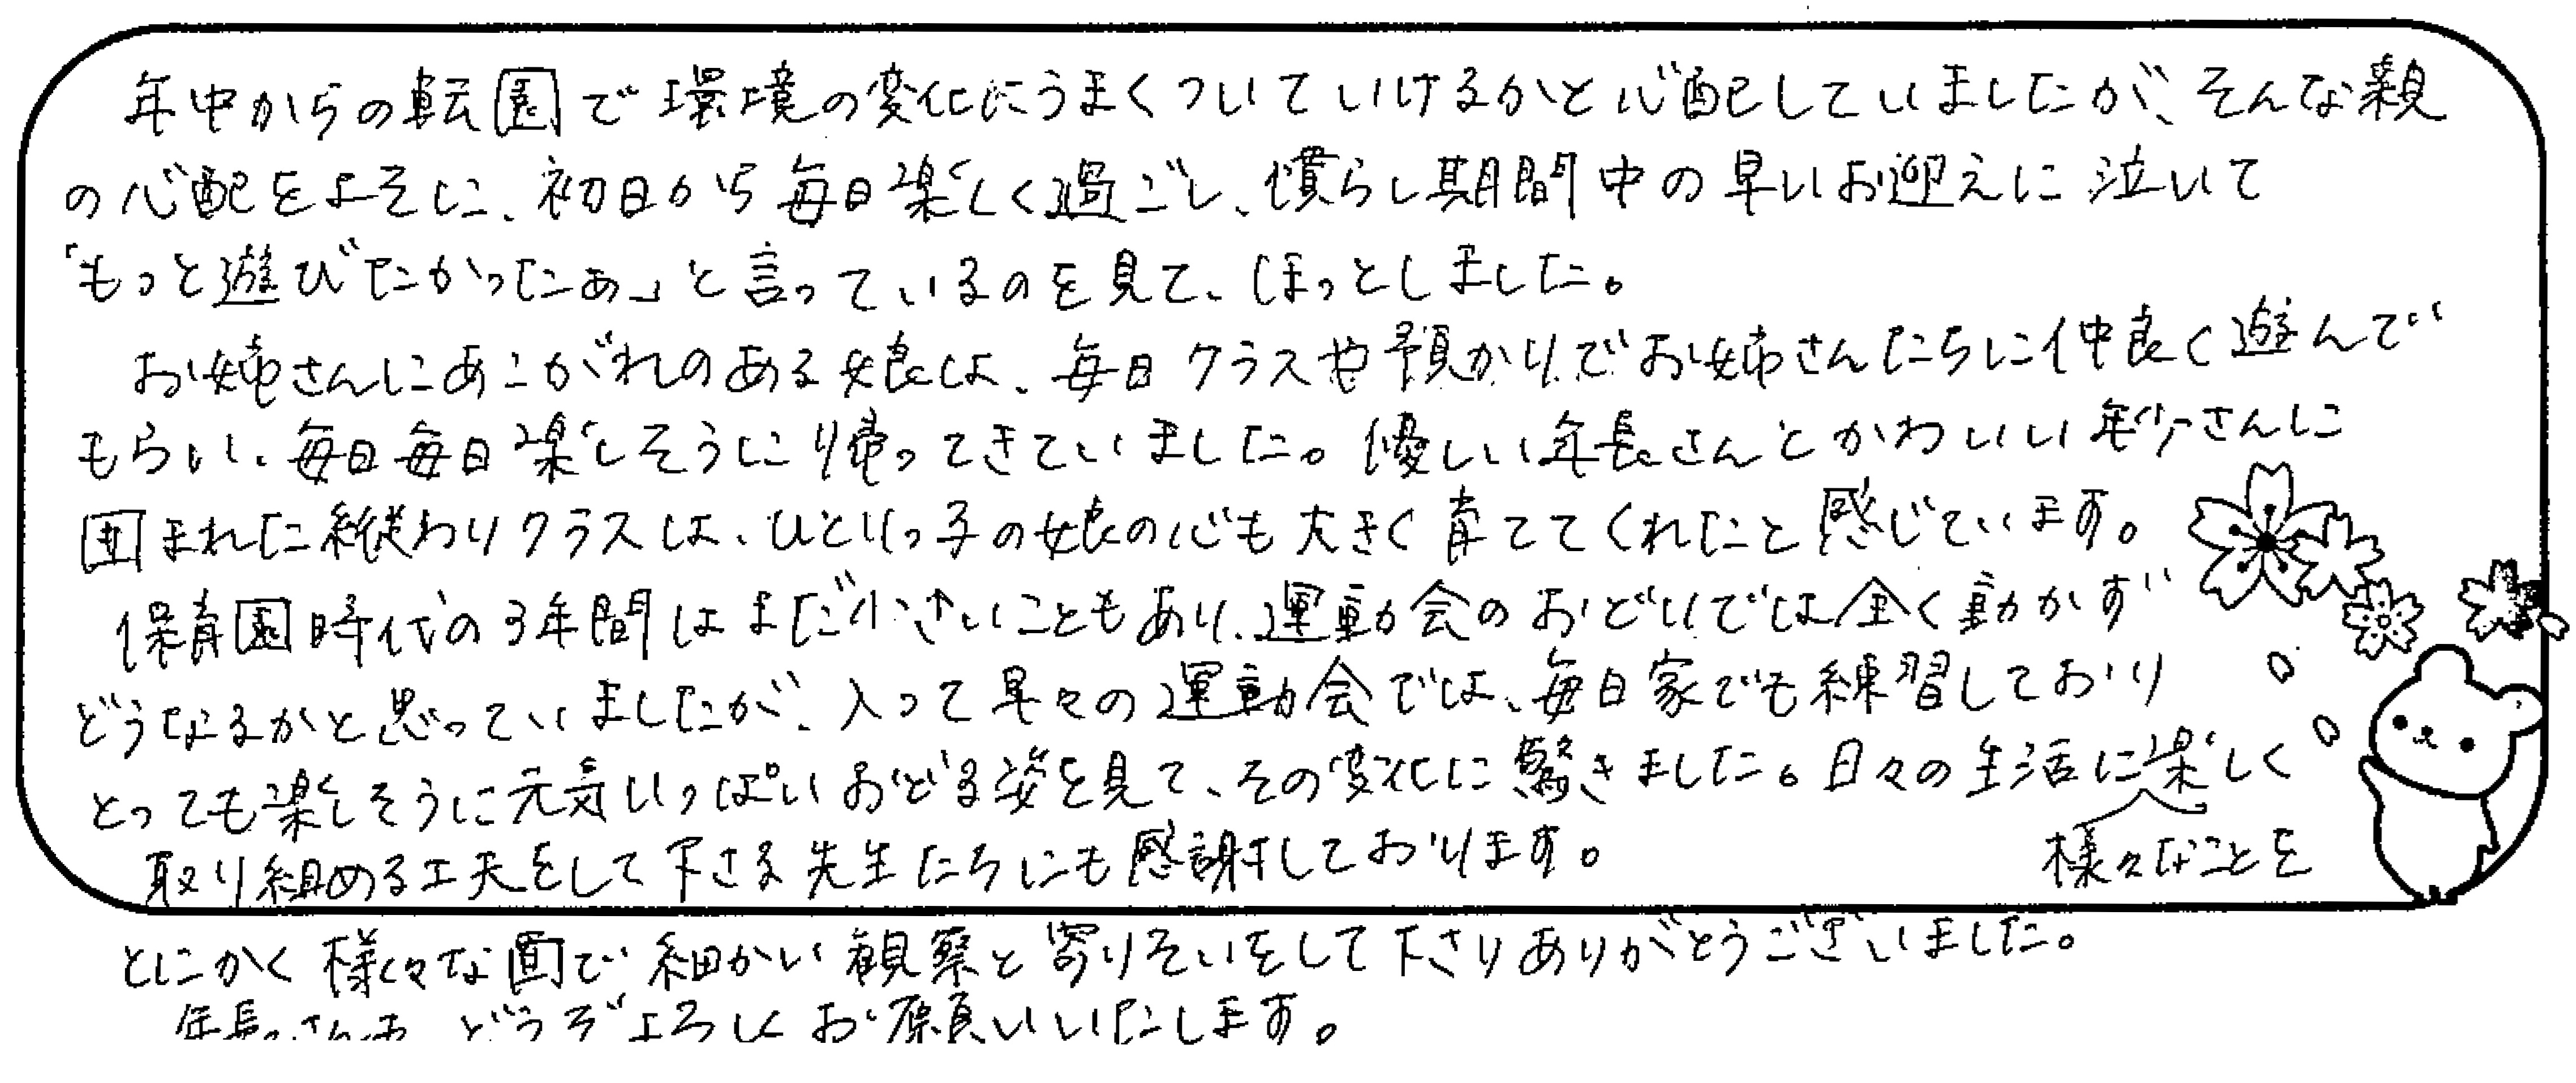 年中からの転園で環境の変化にうまくついていけるかと心配していましたが、そんな親
の心配をよそに、初日から毎日楽しく過ごし、慣らし期間中の早いお迎えに泣いて
「もっと遊びたかったぁ」と言っているのを見て、ほっとしました。
お姉さんにあこがれのある娘は、毎日クラスや預かりでお姉さんたちに仲良く遊んで
もらい、毎日毎日楽しそうに帰ってきていました。優しい年長さんとかわいい年少さんに
囲まれた縦わりクラスは、ひとりっ子の娘の心も大きく育ててくれたと感じています。
保育園時代の3年間はまだ小さいこともあり、運動会のおどりでは全く動かず
どうなるかと思っていましたが、入って早々の運動会では、毎日家でも練習しており
とっても楽しそうに元気いっぱいおどる姿を見て、その変化に驚きました。日々の生活に楽しく
様々なことを
取り組める工夫をして下さる先生たちにも感謝しております。
とにかく様々な面で細かい観察と寄りそいをして下さりありがとうございました。
年長さんも どうぞよろしくお願いいたします。